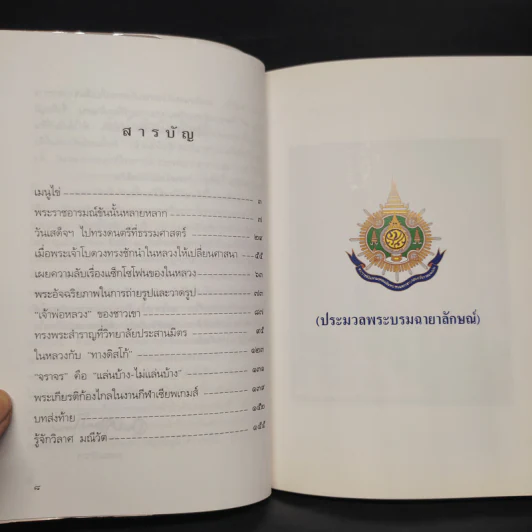 สารบัญ
เมนูไข่ ๓
พระราชอารมณ์ขันนั้นหลายหลาก ๗
วันเสด็จฯ ไปทรงดนตรีที่ธรรมศาสตร์ ๒๔
เมื่อพระเจ้าโบดวงทรงชักนำในหลวงให้เปลี่ยนศาสนา ๕๕
เผยความลับเรื่องแซ็กโซโฟนของในหลวง ๖๓
พระอัจฉริยภาพในการถ่ายรูปและวาดรูป ๗๓
"เจ้าพ่อหลวง" ของชาวเขา ๘๗
ทรงพระสำราญที่วิทยาลัยประสานมิตร ๙๕
ในหลวงกับ "ทางดิสโก้" ๑๒๓
"จราจร" คือ "แล่นบ้าง-ไม่แล่นบ้าง" ๑๓๑
พระเกียรติก้องไกลในงานกีฬาเซียพเกมส์ ๑๓๙
บทส่งท้าย ๑๕๒
รู้จักวิลาศ มณีวัต ๑๕๕
๘
(ประมวลพระบรมฉายาลักษณ์)